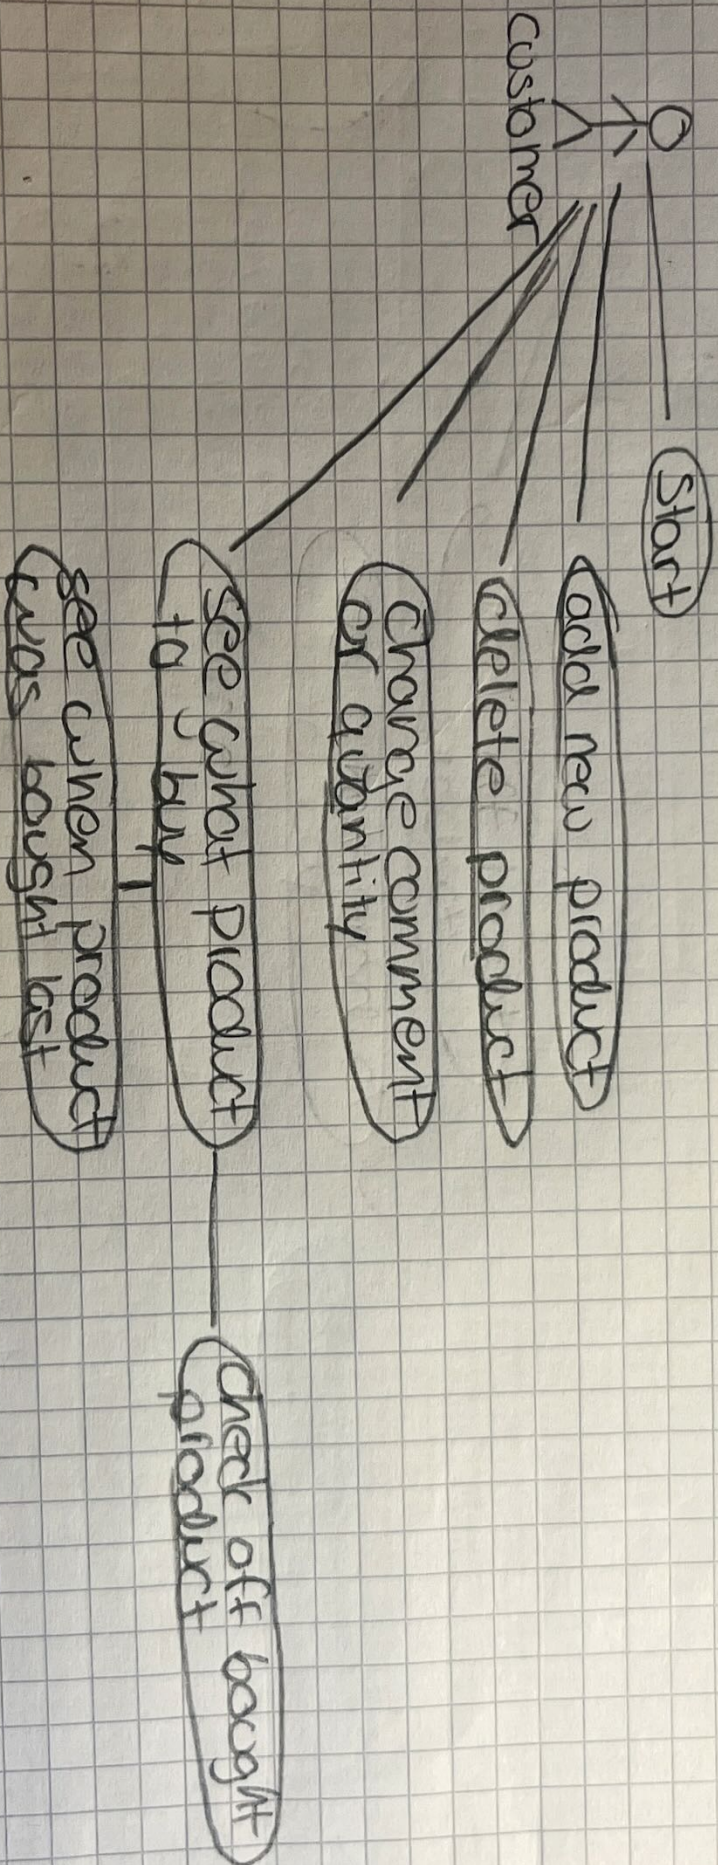 Customer
Start
add new product
delete product
change comment
or quantity
see what product
to buy
check off bought
product
see when product
was bought last